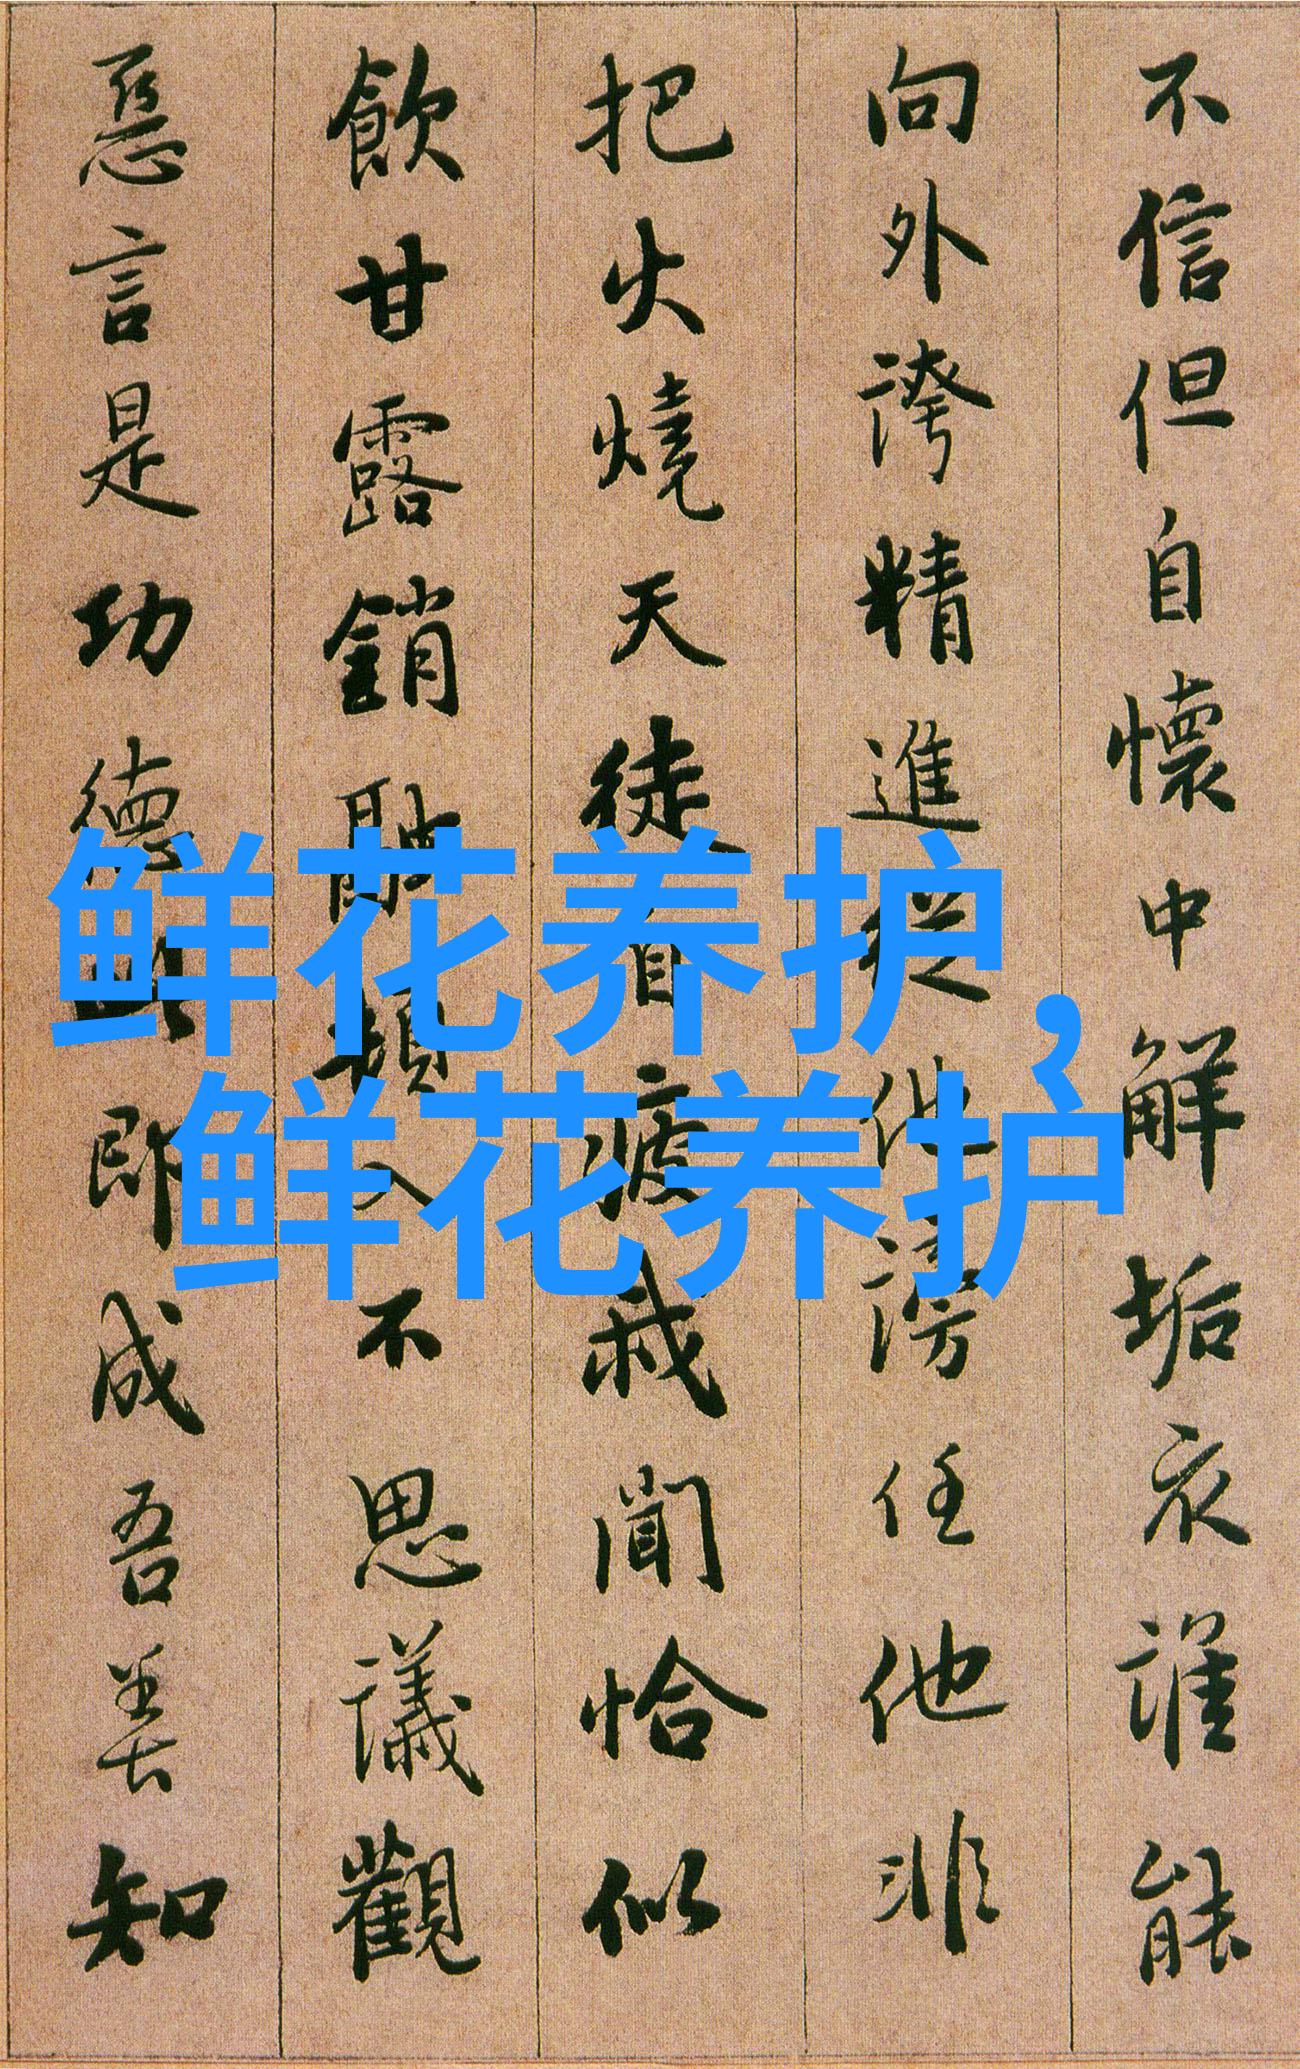 不信但自懷中解垢衣誰能
向外誇精進從他謗任他非
把火燒天徒自疲我聞恰似
飲甘露銷融頓入不思議觀
惡言是功德此即成吾善知
鲜花养护，
鲜花养护